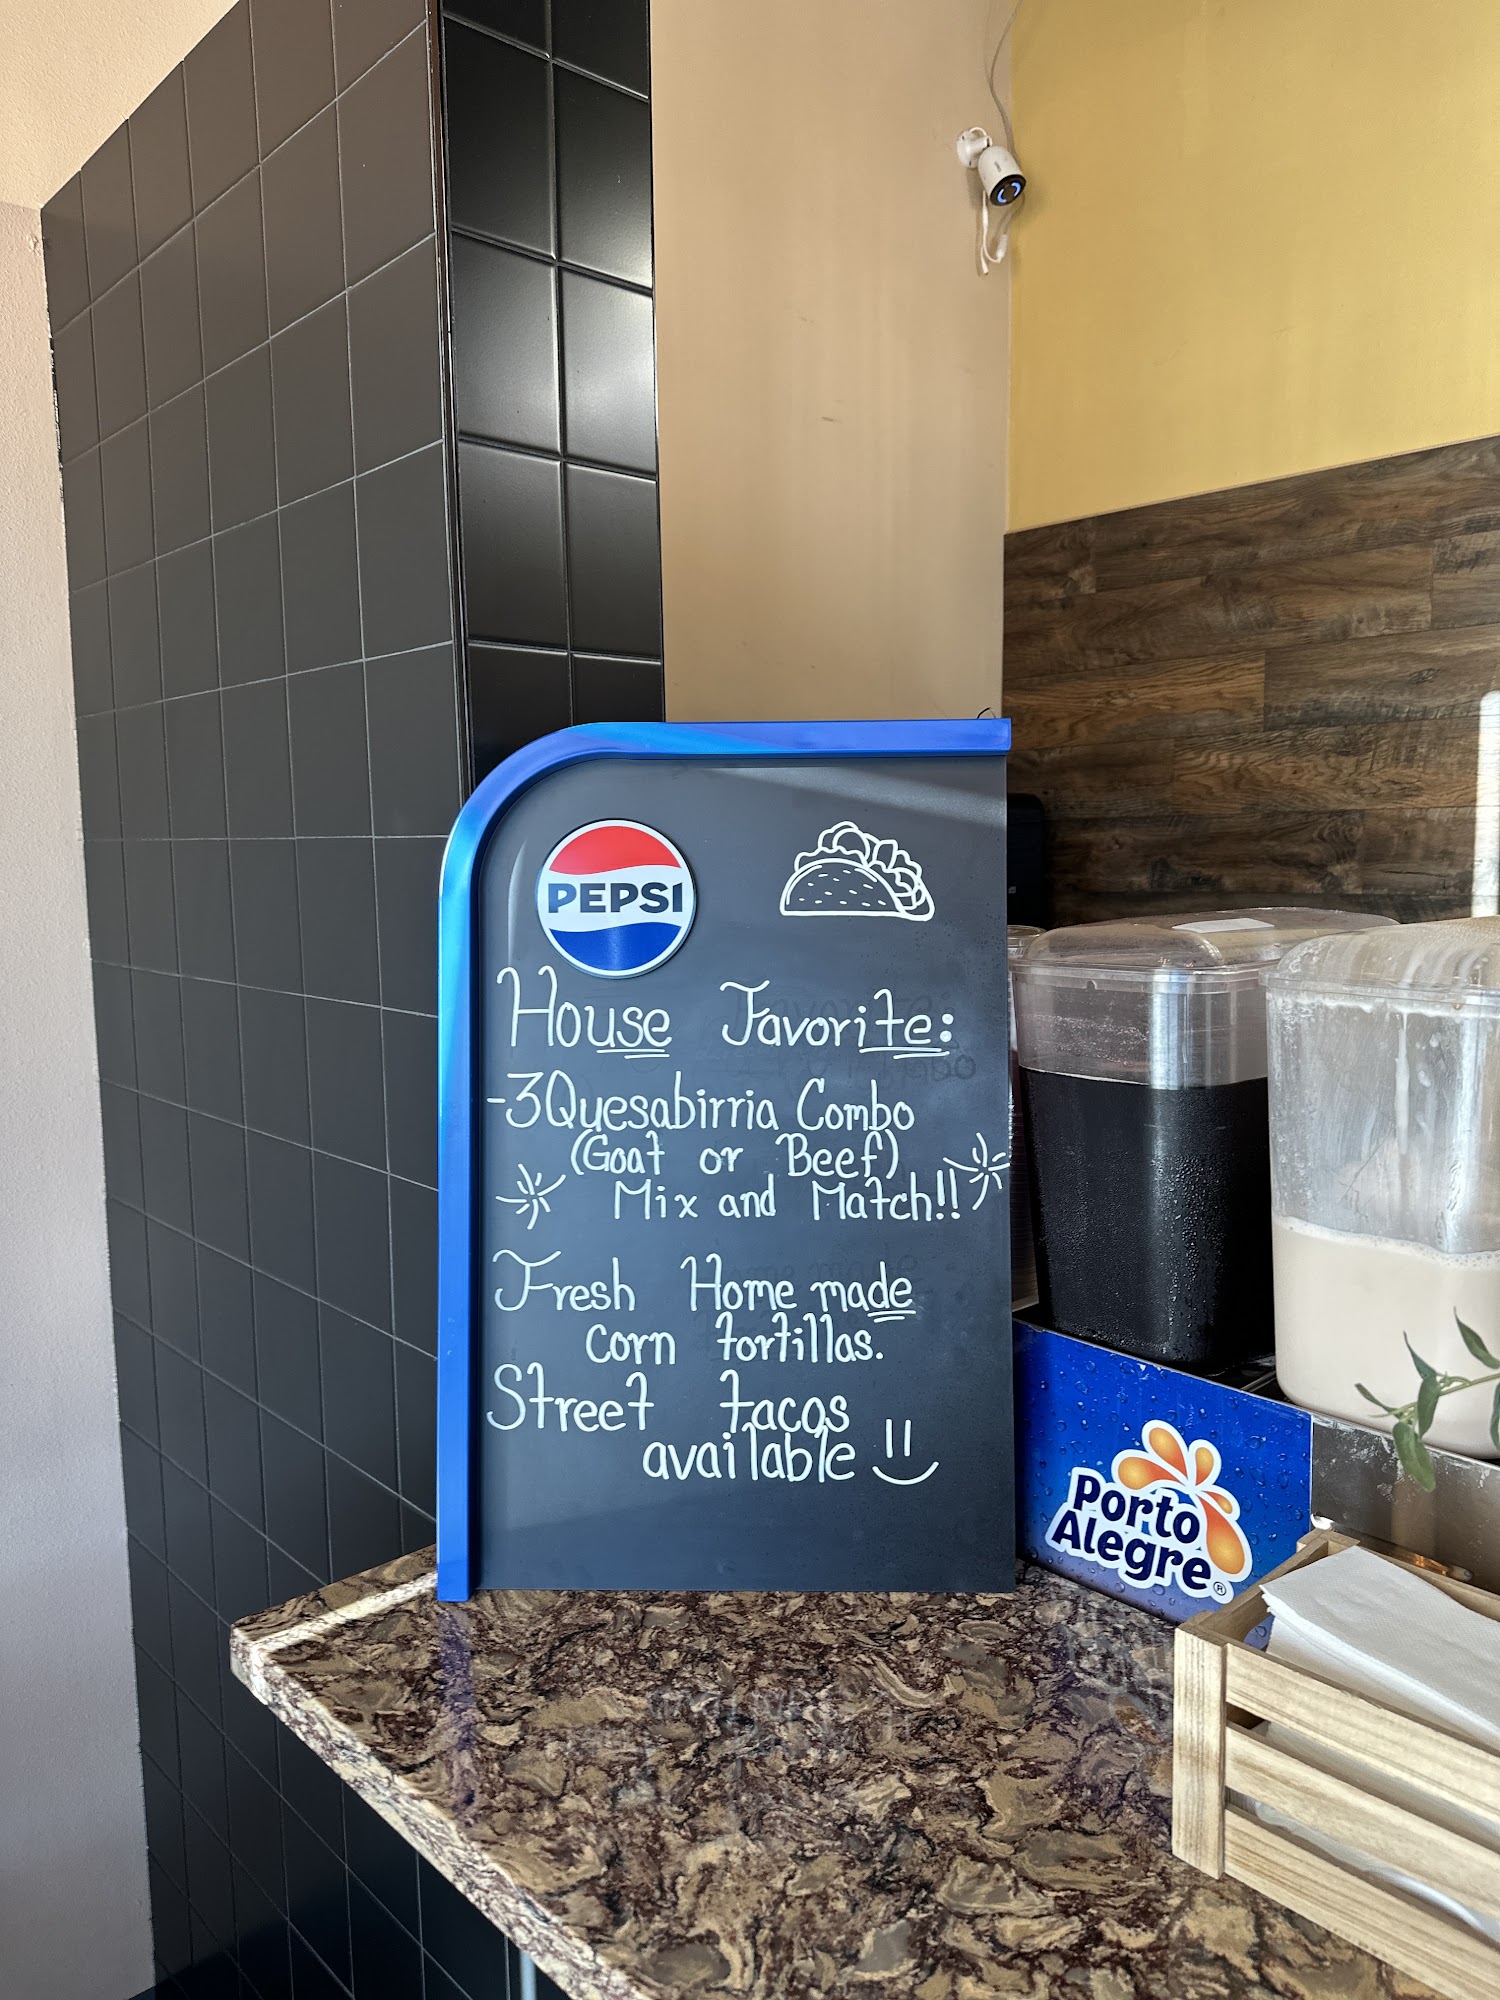 PEPSI
House Favorite:
-3Quesabirria Combo
(Goat or Beef)
Mix and Match!!
Fresh Home made
corn tortillas.
Street tacos
available
Porto
Alegre®